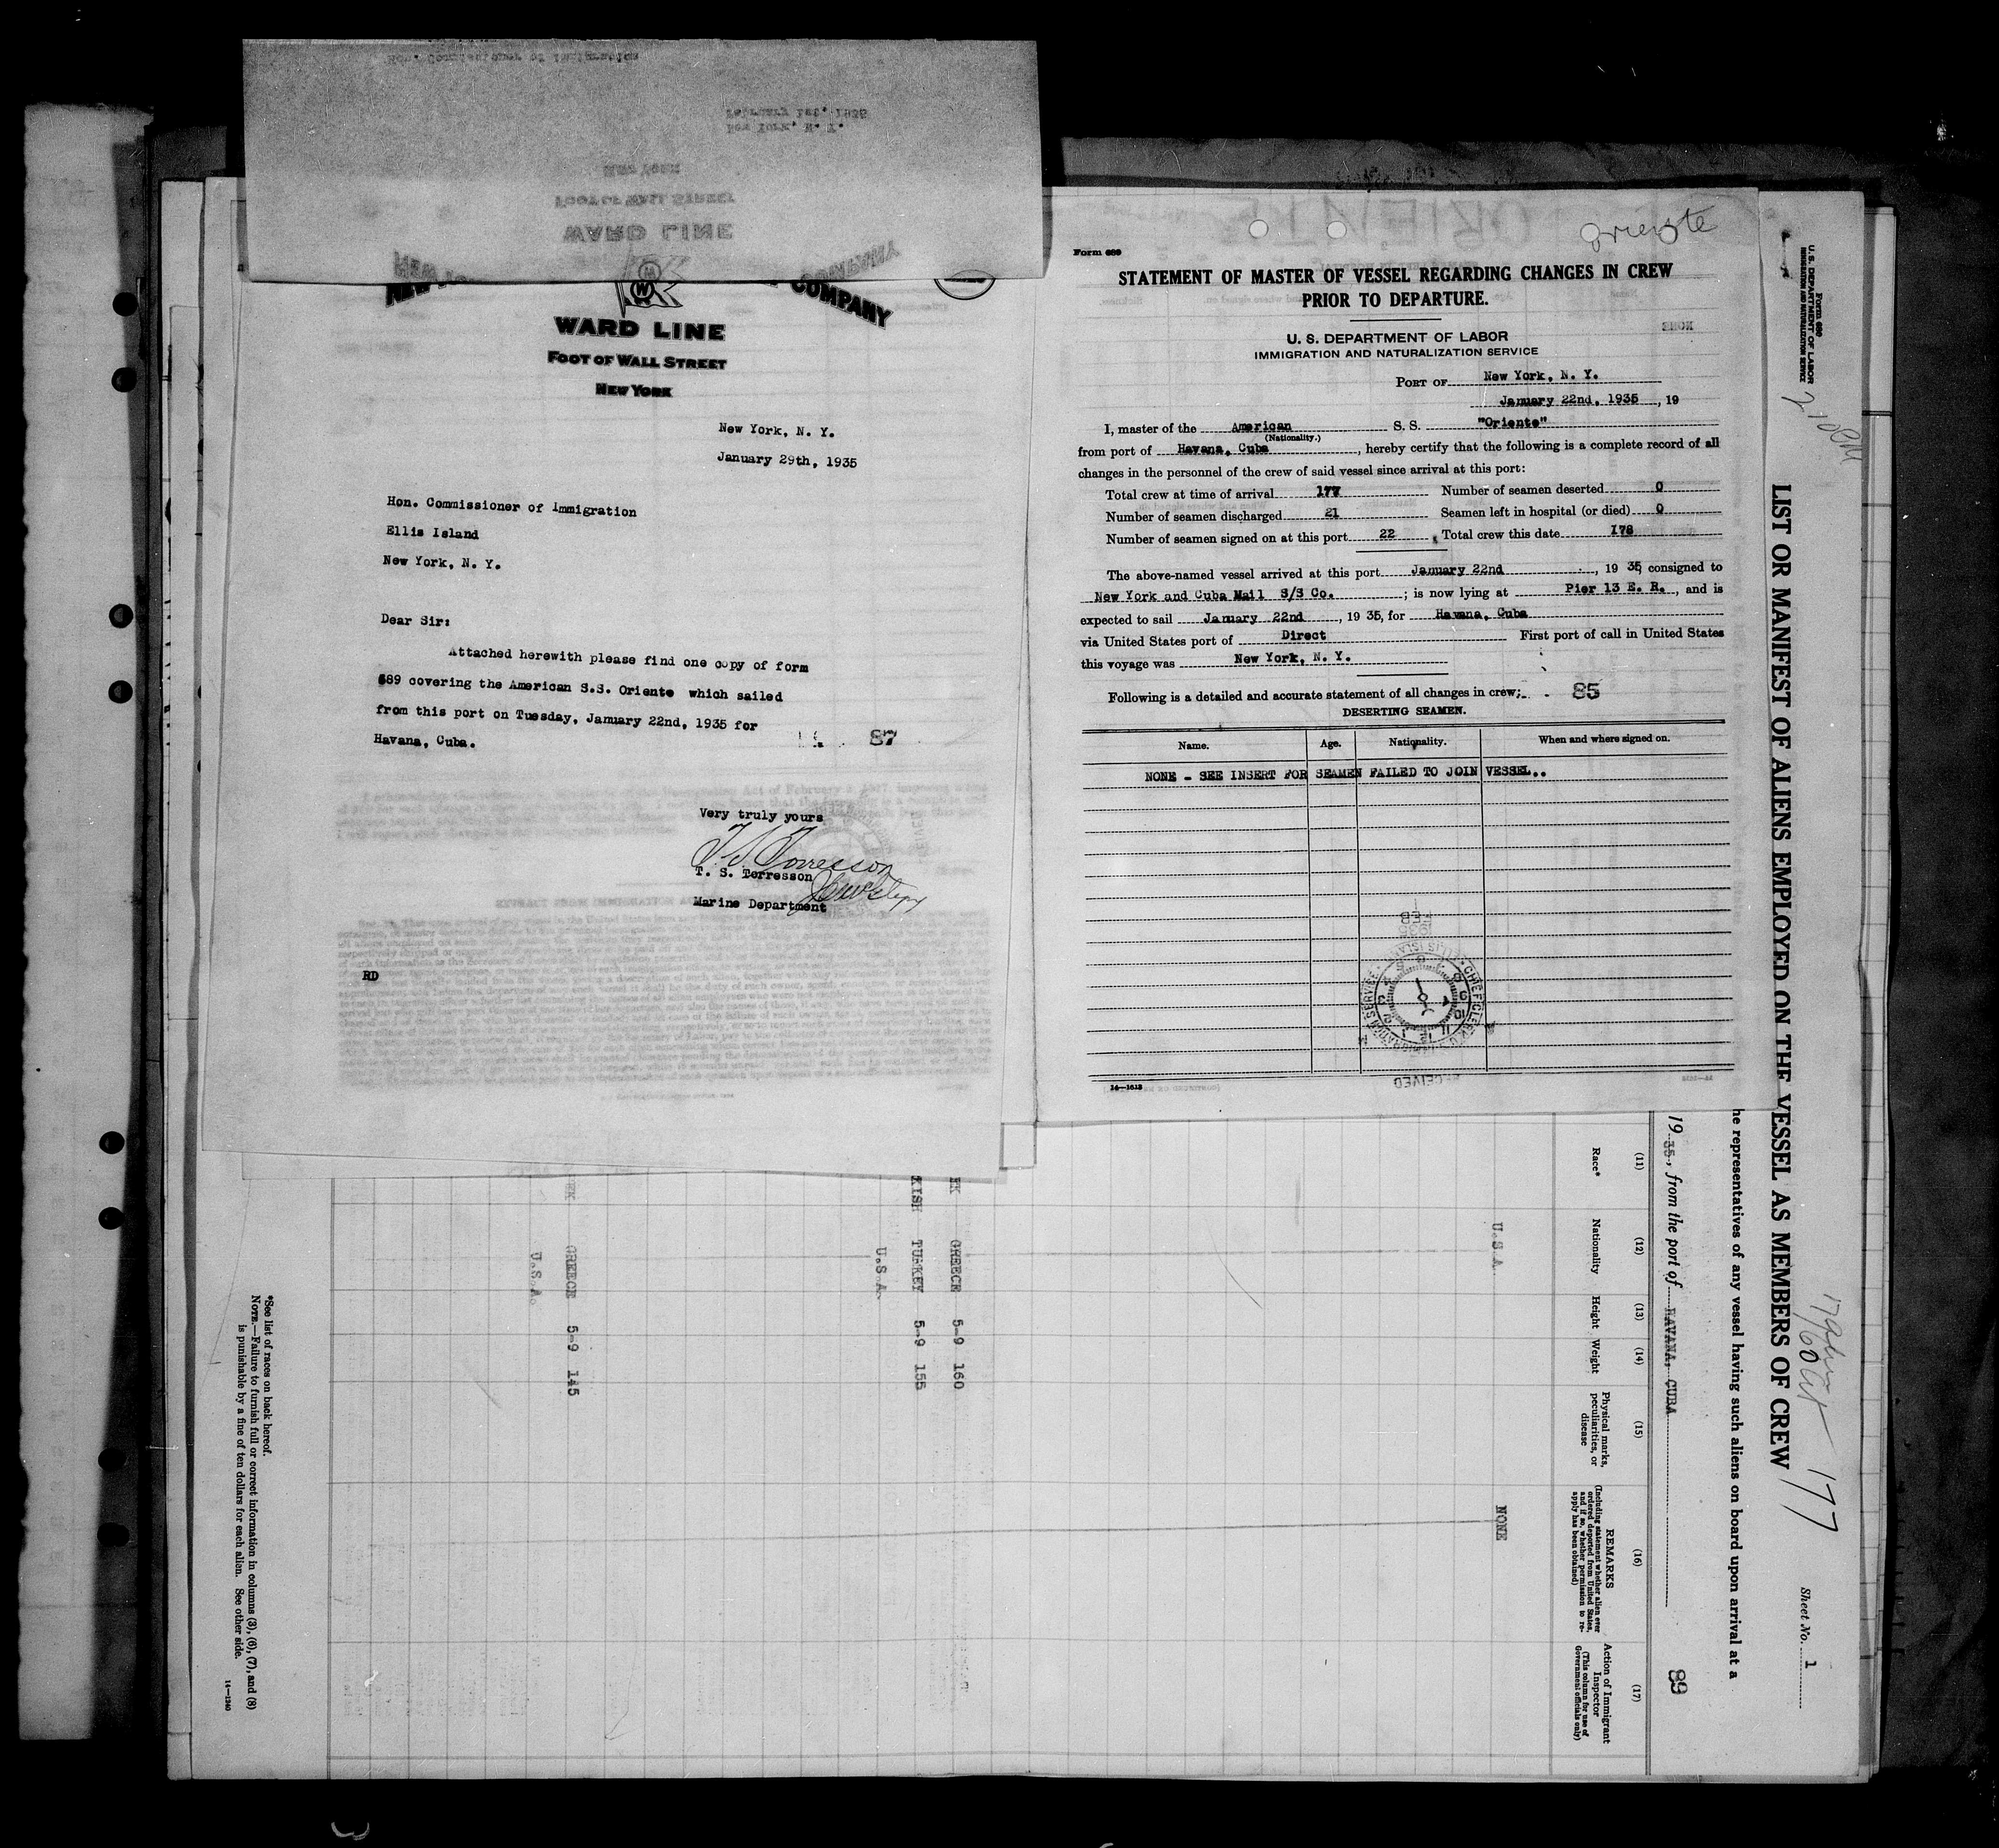 COMPANY
WARD LINE
FOOT OF WALL STREET
NEW YORK
New York, N. Y.
January 29th, 1935
Hon. Commissioner of Immigration
Ellis Island
New York, N. Y.
Dear Sir:
Attached herewith please find one copy of form
689 covering the American S.S. Oriente which sailed
from this port on Tuesday, January 22nd, 1935 for
Havana, Cuba.
87
Very truly yours
T. S. Torresson
T. S. Torresson
Marine Department
RD
Oriente
Form 689
STATEMENT OF MASTER OF VESSEL REGARDING CHANGES IN CREW
PRIOR TO DEPARTURE.
U. S. DEPARTMENT OF LABOR
IMMIGRATION AND NATURALIZATION SERVICE
PORT OF New York, N. Y.
January 22nd, 1935, 19
I, master of the American S. S. "Oriente"
(Nationality.)
from port of Havana, Cuba, hereby certify that the following is a complete record of all
changes in the personnel of the crew of said vessel since arrival at this port:
Total crew at time of arrival 177 Number of seamen deserted 0
Number of seamen discharged 21 Seamen left in hospital (or died) 0
Number of seamen signed on at this port 22 Total crew this date 178
The above-named vessel arrived at this port January 22nd, 19 35, consigned to
New York and Cuba Mail S/S Co. ; is now lying at Pier 13 E. R., and is
expected to sail January 22nd, 19 35, for Havana, Cuba
via United States port of Direct First port of call in United States
this voyage was New York, N. Y.
Following is a detailed and accurate statement of all changes in crew: 85
DESERTING SEAMEN.
Name. Age. Nationality. When and where signed on.
NONE - SEE INSERT FOR SEAMEN FAILED TO JOIN VESSEL..
14—1613
Form 680
U. S. DEPARTMENT OF LABOR
IMMIGRATION AND NATURALIZATION SERVICE
LIST OR MANIFEST OF ALIENS EMPLOYED ON THE VESSEL AS MEMBERS OF CREW
177
Sheet No. 1
he representatives of any vessel having such aliens on board upon arrival at a
19 35, from the port of HAVANA, CUBA
89
(11) (12) (13) (14) (15) (16) (17)
Race*
Nationality
Height
Weight
Physical marks, peculiarities, or disease
REMARKS
(Including statement whether alien ever ordered deported from United States, and if so, whether permission to reapply has been obtained)
Action of Immigrant Inspector
(This column for use of Government officials only)
U.S.A. NONE
EK GREECE 5-9 160
KISH TURKEY 5-9 155
U.S.A.
GREECE 5-9 145
U.S.A.
*See list of races on back hereof.
NOTE.—Failure to furnish full or correct information in columns (3), (6), (7), and (8)
is punishable by a fine of ten dollars for each alien. See other side.
14—1240